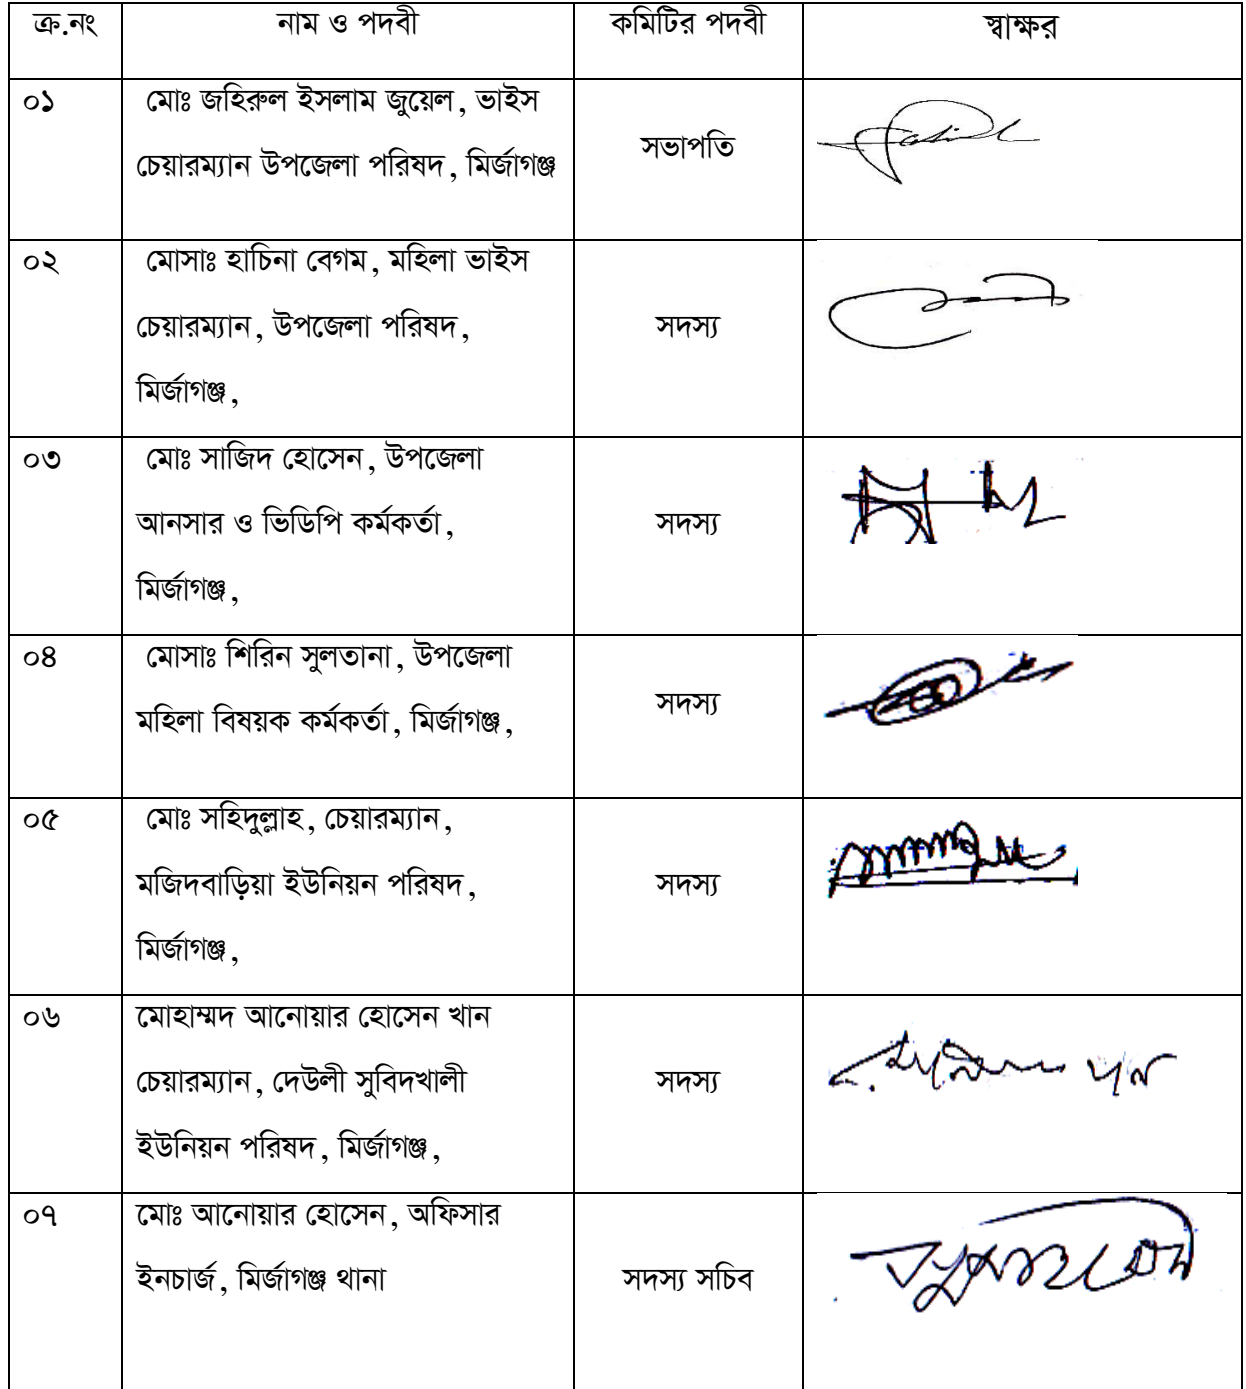 ক্র.নং নাম ও পদবী কমিটির পদবী স্বাক্ষর
০১ মোঃ জহিরুল ইসলাম জুয়েল, ভাইস
চেয়ারম্যান উপজেলা পরিষদ, মির্জাগঞ্জ
সভাপতি
০২ মোসাঃ হাচিনা বেগম, মহিলা ভাইস
চেয়ারম্যান, উপজেলা পরিষদ,
মির্জাগঞ্জ,
সদস্য
০৩ মোঃ সাজিদ হোসেন, উপজেলা
আনসার ও ভিডিপি কর্মকর্তা,
মির্জাগঞ্জ,
সদস্য
০৪ মোসাঃ শিরিন সুলতানা, উপজেলা
মহিলা বিষয়ক কর্মকর্তা, মির্জাগঞ্জ,
সদস্য
০৫ মোঃ সহিদুল্লাহ, চেয়ারম্যান,
মজিদবাড়িয়া ইউনিয়ন পরিষদ,
মির্জাগঞ্জ,
সদস্য
০৬ মোহাম্মদ আনোয়ার হোসেন খান
চেয়ারম্যান, দেউলী সুবিদখালী
ইউনিয়ন পরিষদ, মির্জাগঞ্জ,
সদস্য
০৭ মোঃ আনোয়ার হোসেন, অফিসার
ইনচার্জ, মির্জাগঞ্জ থানা
সদস্য সচিব